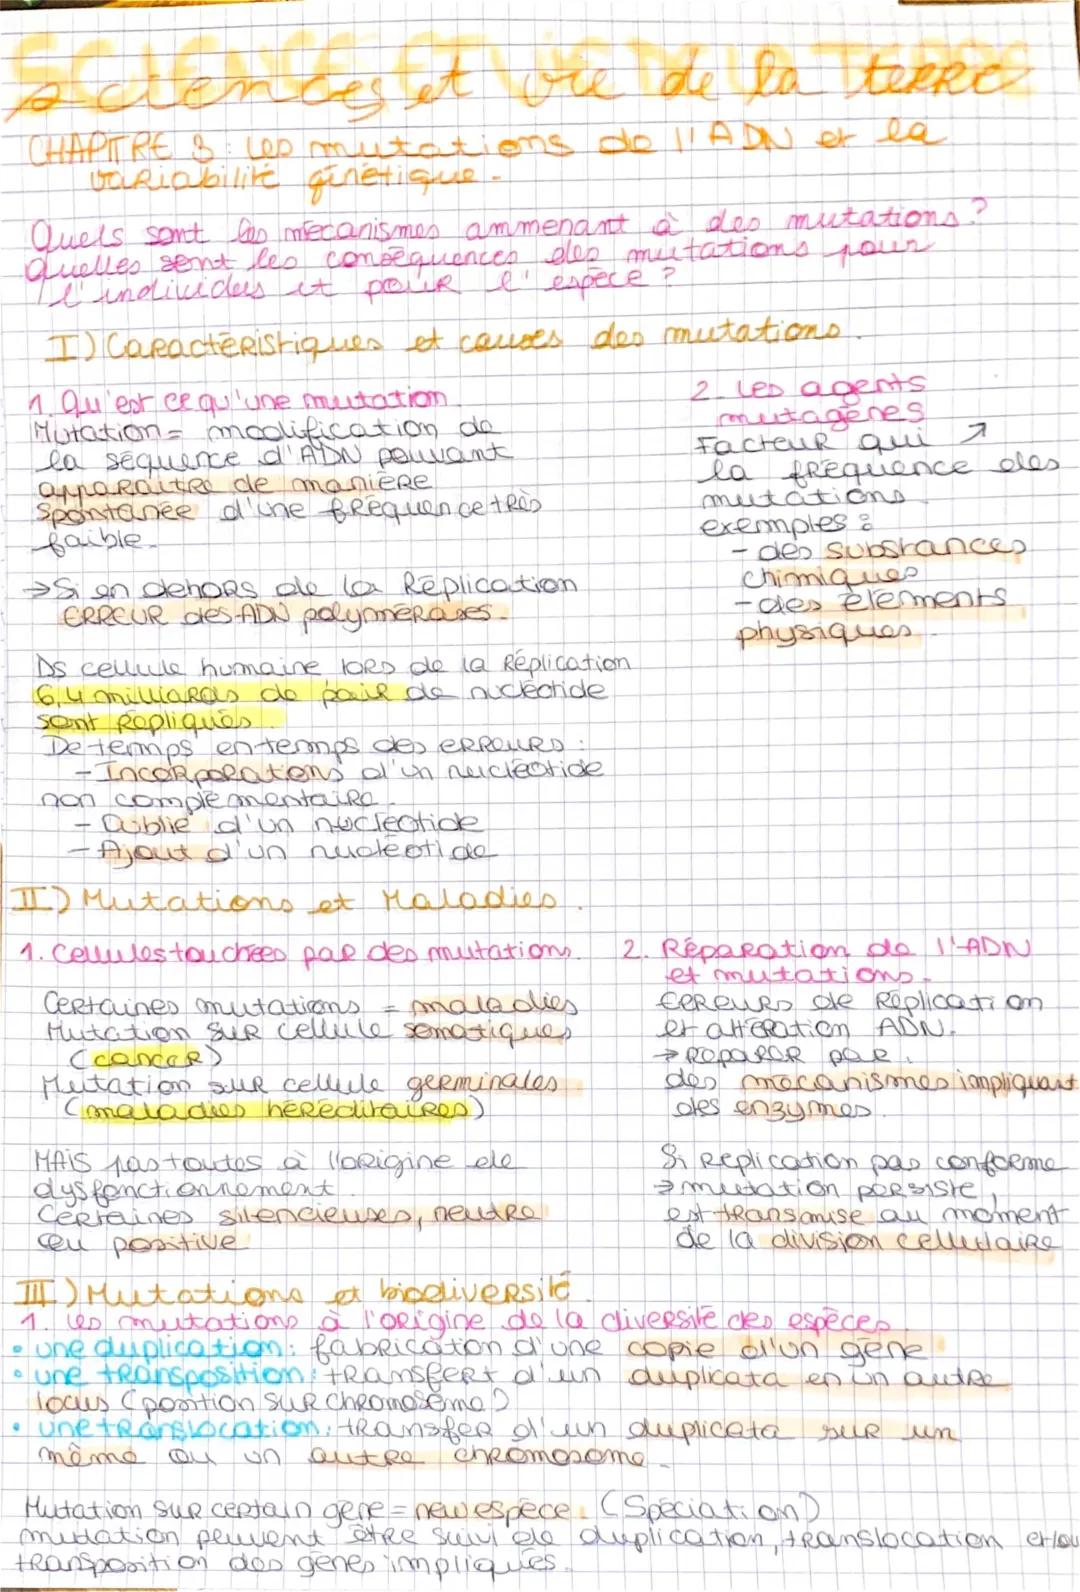 SCIENCE ET VIE DE LA TERRE
Sciences et vie de la terre
CHAPITRE 3 : les mutations de l'ADN et la
variabilité génétique.
Quels sont les mécanismes ammenant à des mutations ?
Quelles sont les conséquences des mutations pour
l'individus et pour l'espèce ?
I) Caractéristiques et causes des mutations.
1. Qu'est ce qu'une mutation
Mutation = modification de
la séquence d'ADN pouvant
apparaitre de manière
spontanée d'une fréquence très
faible.
→ Si en dehors de la Réplication
ERREUR des ADN polymérases.
Ds cellule humaine lors de la Réplication
6,4 milliards de pair de nucléotide
sont répliqués.
De temps en temps des erreurs :
- Incorporations d'un nucléotide
non complémentaire.
- Oublie d'un nucléotide
- Ajout d'un nucléotide
2. Les agents
mutagènes
Facteur qui ↗
la fréquence des
mutations.
exemples :
- des substances
chimiques
- des éléments
physiques.
II) Mutations et Maladies.
1. Cellules touchées par des mutations.
Certaines mutations = maladies
Mutation sur cellule somatiques
(cancer)
Mutation sur cellule germinales
(maladies héréditaires)
MAIS pas toutes à l'origine de
dysfonctionnement.
Certaines silencieuses, neutre
ou positive
2. Réparation de l'ADN
et mutations.
Erreurs de Réplication
et altération ADN.
→ réparer par :
des mécanismes impliquant
des enzymes.
Si Réplication pas conforme
→ mutation persiste,
est transmise au moment
de la division cellulaire
III) Mutations et biodiversité
1. les mutations à l'origine de la diversité des espèces.
• une duplication : fabrication d'une copie d'un gène
• une transposition : transfert d'un duplicata en un autre
locus (position sur chromosome)
• une translocation : transfer d'un duplicata sur un
même ou un autre chromosome.
Mutation sur certain gène = new espèce. (Spéciation)
mutation peuvent être suivi de duplication, translocation et/ou
transposition des gènes impliqués.